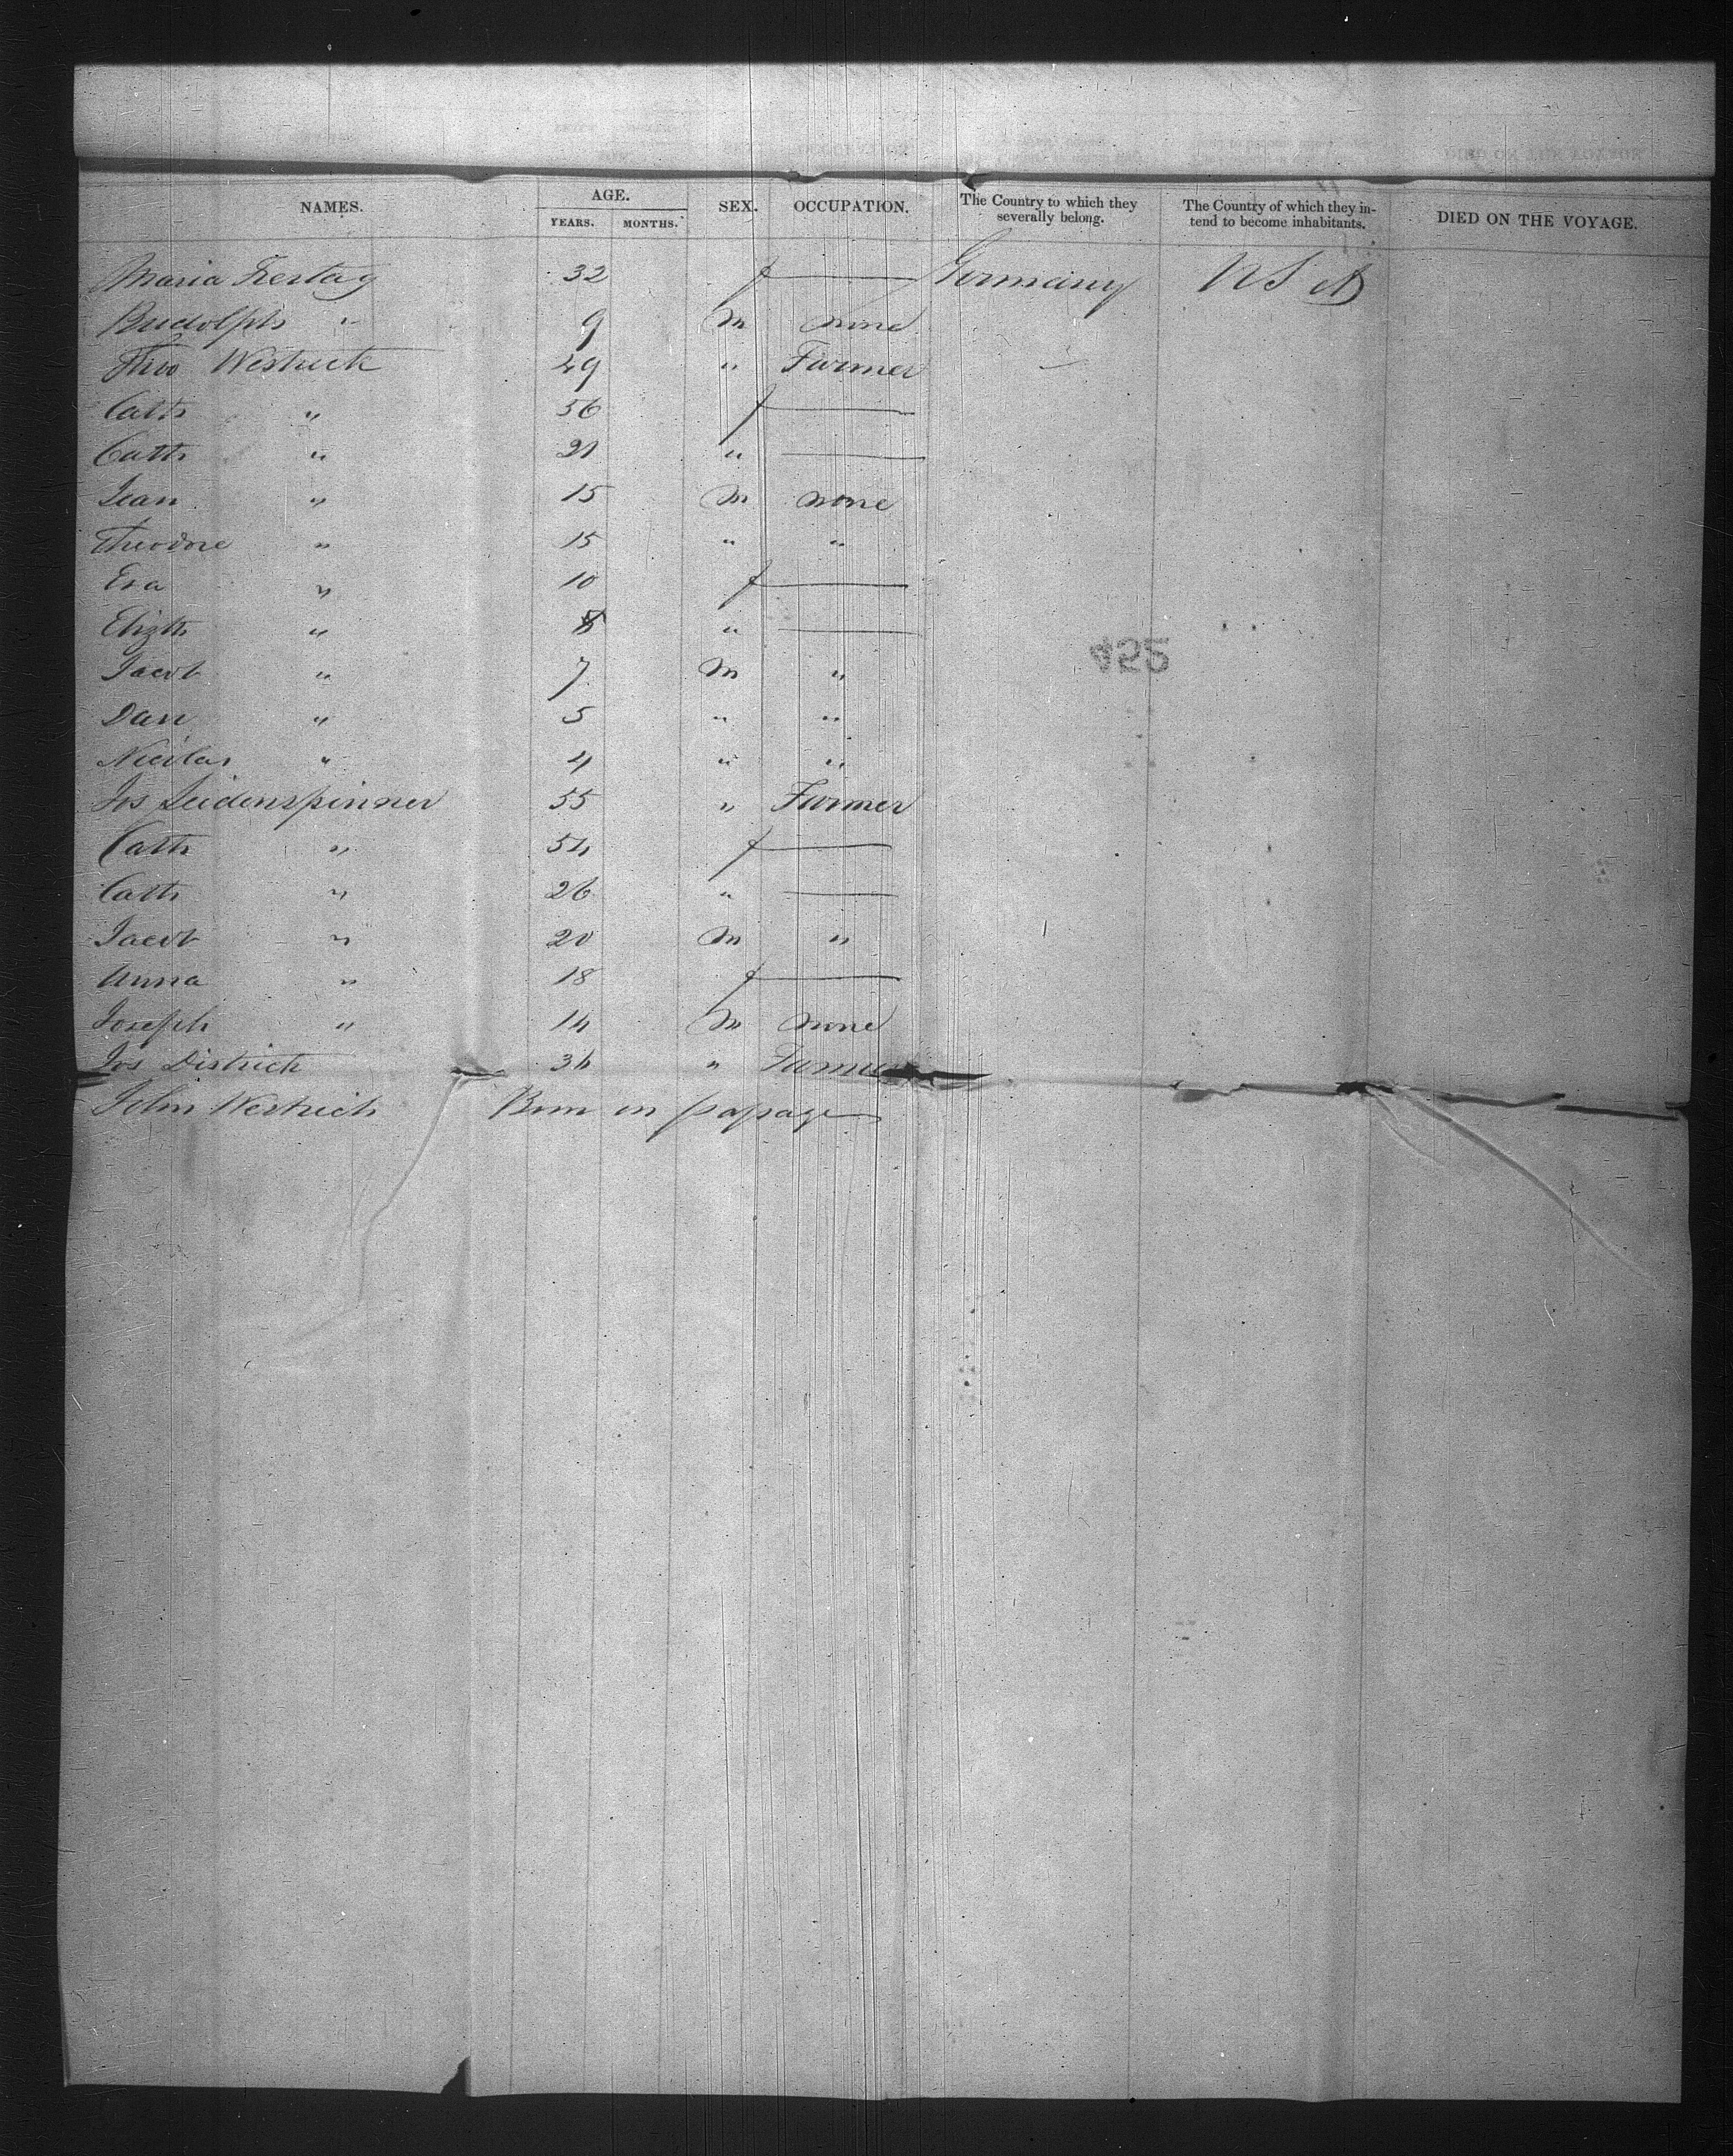 NAMES. AGE. YEARS. MONTHS. SEX. OCCUPATION. The Country to which they severally belong. The Country of which they intend to become inhabitants. DIED ON THE VOYAGE.
Maria Freitag 32 f — Germany U S A
Rudolph " 9 m none
Theo Westrick 49 " Farmer
Cath " 56 f —
Cath " 21 " —
Jean " 15 m none
Theodore " 15 " "
Eva " 10 f —
Elizth " 8 " —
Jacob " 7 m "
Dan " 5 " "
Nicolas " 4 " "
Jos Seidenspinner 55 " Farmer
Cath " 54 f —
Cath " 26 " —
Jacob " 20 m "
Anna " 18 f —
Joseph " 14 m none
Jos Districh 34 " Farmer
John Westrich Born on passage
452